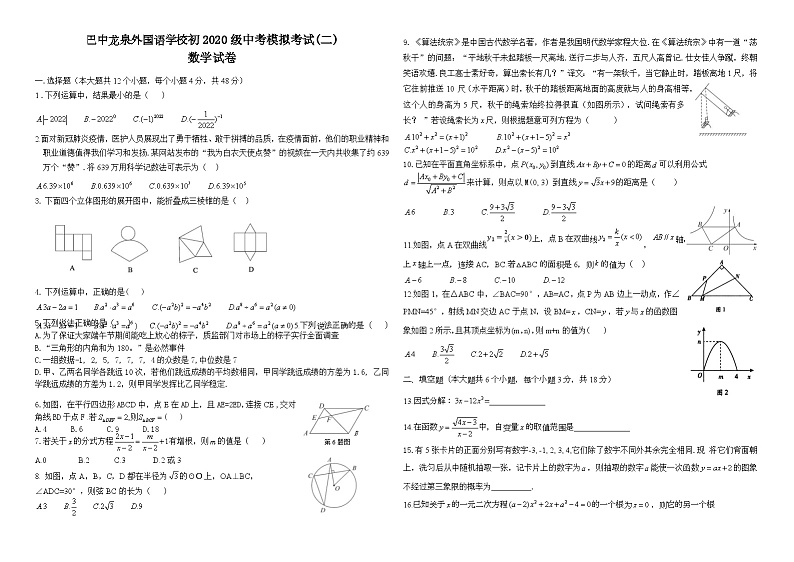 巴中龙泉外国语学校初2020级中考模拟考试(二)
数学试卷
一.选择题(本大题共12个小题,每个小题4分,共48分)
1.下列运算中,结果最小的是( )
A|-2022| B.-2022⁰ C.(-1)²⁰²² D.(-1/2022)⁻¹
2面对新冠肺炎疫情,医护人员展现出了勇于牺牲、敢于拼搏的品质,在疫情面前,他们的职业精神和
职业道德值得我们学习和发扬.某网站发布的“我为白衣天使点赞”的视频在一天内共收集了约639
万个“赞”.将639万用科学记数法可表示为( )
A6.39×10⁶ B.0.639×10⁶ C.0.639×10⁷ D.6.39×10⁵
3. 下面四个立体图形的展开图中,能折叠成三棱锥的是( )
A B C D
4. 下列运算中,正确的是( )
A3a-2a=1 B.a²·a³=a⁶ C.(-a²b)²=-a⁴b² D.a⁸÷a⁶=a²(a≠0)
5.下列说法正确的是( )
A.为了保证大家端午节期间能吃上放心的粽子,质监部门对市场上的粽子实行全面调查
B.“三角形的内角和为180°”是必然事件
C.一组数据-1, 2, 5, 7, 7, 7, 4的众数是7,中位数是7
D.甲、乙两名同学各跳远10次,若他们跳远成绩的平均数相同,甲同学跳远成绩的方差为1.6,乙同
学跳远成绩的方差为1.2,则甲同学发挥比乙同学稳定.
6.如图,在平行四边形ABCD中,点E在AD上,且AE=2ED,连接CE,交对
角线BD于点F.若S△DEF=2,则S△BCF=( )
A.4 B.6 C.9 D.18
第6题图
7.若关于x的分式方程(2x-1)/(x-2)=m/(x-2)+1有增根,则m的值是( )
A.0 B.2 C.3 D.2或3
8 如图,点A,B,C,D都在半径为√3的⊙O上,OA⊥BC,
∠ADC=30°,则弦BC的长为( )
A3 B.3/2 C.2√3 D.9
9.《算法统宗》是中国古代数学名著,作者是我国明代数学家程大位.在《算法统宗》中有一道“荡
秋千”的问题:“平地秋千未起踏板一尺离地.送行二步与人齐,五尺人高曾记.仕女佳人争蹴,终朝
笑语欢嬉.良工高士素好奇,算出索长有几?”译文:“有一架秋千,当它静止时,踏板离地1尺,将
它往前推送10尺(水平距离)时,秋千的踏板距离地面的高度就与人的身高相等,
这个人的身高为5尺,秋千的绳索始终拉得很直(如图所示),试问绳索有多
长? ”若设绳索长为x尺,则根据题意可列方程为( )
A10²+x²=(x+1)² B.10²+(x+1-5)²=x²
C.x²+(x+1-5)²=10² D.x²-(x-5)²=10²
10.已知在平面直角坐标系中,点P(x₀,y₀)到直线Ax+By+C=0的距离d可以利用公式
d=|Ax₀+By₀+C|/√(A²+B²)来计算,则点以M(0,3)到直线y=√3x+9的距离是( )
A6 B.3 C.(9+3√3)/2 D.(9-3√3)/2
11.如图,点A在双曲线y₁=2/x(x>0)上,点B在双曲线y₂=k/x(x<0), AB∥x轴,
上x轴上一点,连接AC,BC若△ABC的面积是6,则k的值为( )
A-6 B.-8 C.-10 D.-12
12如图1,在△ABC中,∠BAC=90°,AB=AC,点P为AB边上一动点,作∠
PMN=45°,射线MN交边AC于点N,设BM=x,CN=y,若y与x的函数图
象如图2所示,且其顶点坐标为(m,n),则m+n的值为( )
A4 B.3√3/2 C.2+2√2 D.2+√5
图1
图2
二、填空题(本大题共6个小题,每个小题3分,共18分)
13因式分解:3x-12x³=
14在函数y=√(4x-3)/(x-2)中,自变量x的取值范围是
15.有5张卡片的正面分别写有数字-3,-1,2,3,4,它们除了数字不同外其余完全相同.现 将它们背面朝
上,洗匀后从中随机抽取一张,记卡片上的数字为a,则抽取的数字a能使一次函数y=ax+2的图象
不经过第三象限的概率为 .
16已知关于x的一元二次方程(a-2)x²+2x+a²-4=0的一个根为x=0,则它的另一个根